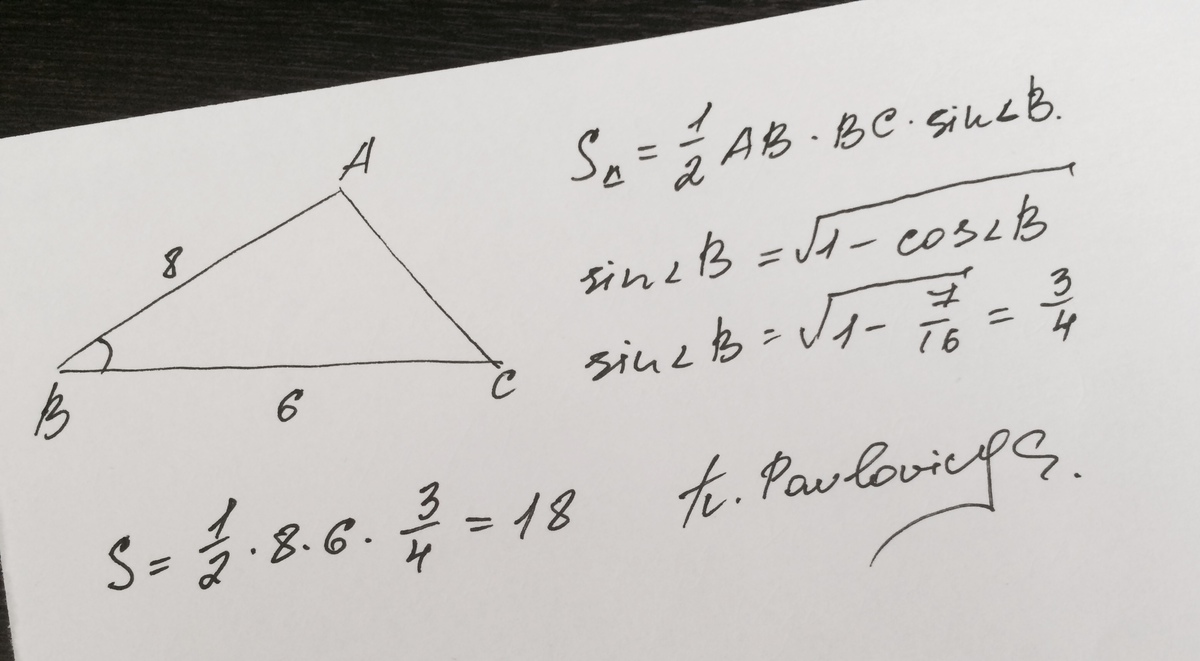 A
8
B
6
C
S△ = 1/2 AB · BC · sin∠B.
sin∠B = √1 - cos∠B
sin∠B = √1 - 7/16 = 3/4
S = 1/2 · 8 · 6 · 3/4 = 18